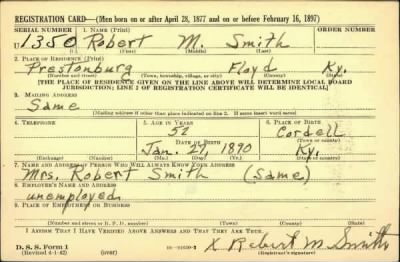 REGISTRATION CARD—(Men born on or after April 28, 1877 and on or before February 16, 1897)
SERIAL NUMBER 1. NAME (Print) ORDER NUMBER
U 1350 Robert M. Smith
(First) (Middle) (Last)
2. PLACE OF RESIDENCE (Print)
Prestonburg Floyd Ky.
(Number and street) (Town, township, village, or city) (County) (State)
[THE PLACE OF RESIDENCE GIVEN ON THE LINE ABOVE WILL DETERMINE LOCAL BOARD
JURISDICTION; LINE 2 OF REGISTRATION CERTIFICATE WILL BE IDENTICAL]
3. MAILING ADDRESS
Same
[Mailing address if other than place indicated on line 2. If same insert word same]
4. TELEPHONE 5. AGE IN YEARS 6. PLACE OF BIRTH
52 Cordell
DATE OF BIRTH (Town or county)
Jan. 27, 1890 Ky.
(Exchange) (Number) (Mo.) (Day) (Yr.) (State or country)
7. NAME AND ADDRESS OF PERSON WHO WILL ALWAYS KNOW YOUR ADDRESS
Mrs. Robert Smith (Same)
8. EMPLOYER'S NAME AND ADDRESS
unemployed
9. PLACE OF EMPLOYMENT OR BUSINESS
(Number and street or R. F. D. number) (Town) (County) (State)
I AFFIRM THAT I HAVE VERIFIED ABOVE ANSWERS AND THAT THEY ARE TRUE.
D. S. S. Form 1
(Revised 4-1-42) (over) X Robert M. Smith
(Registrant's signature)